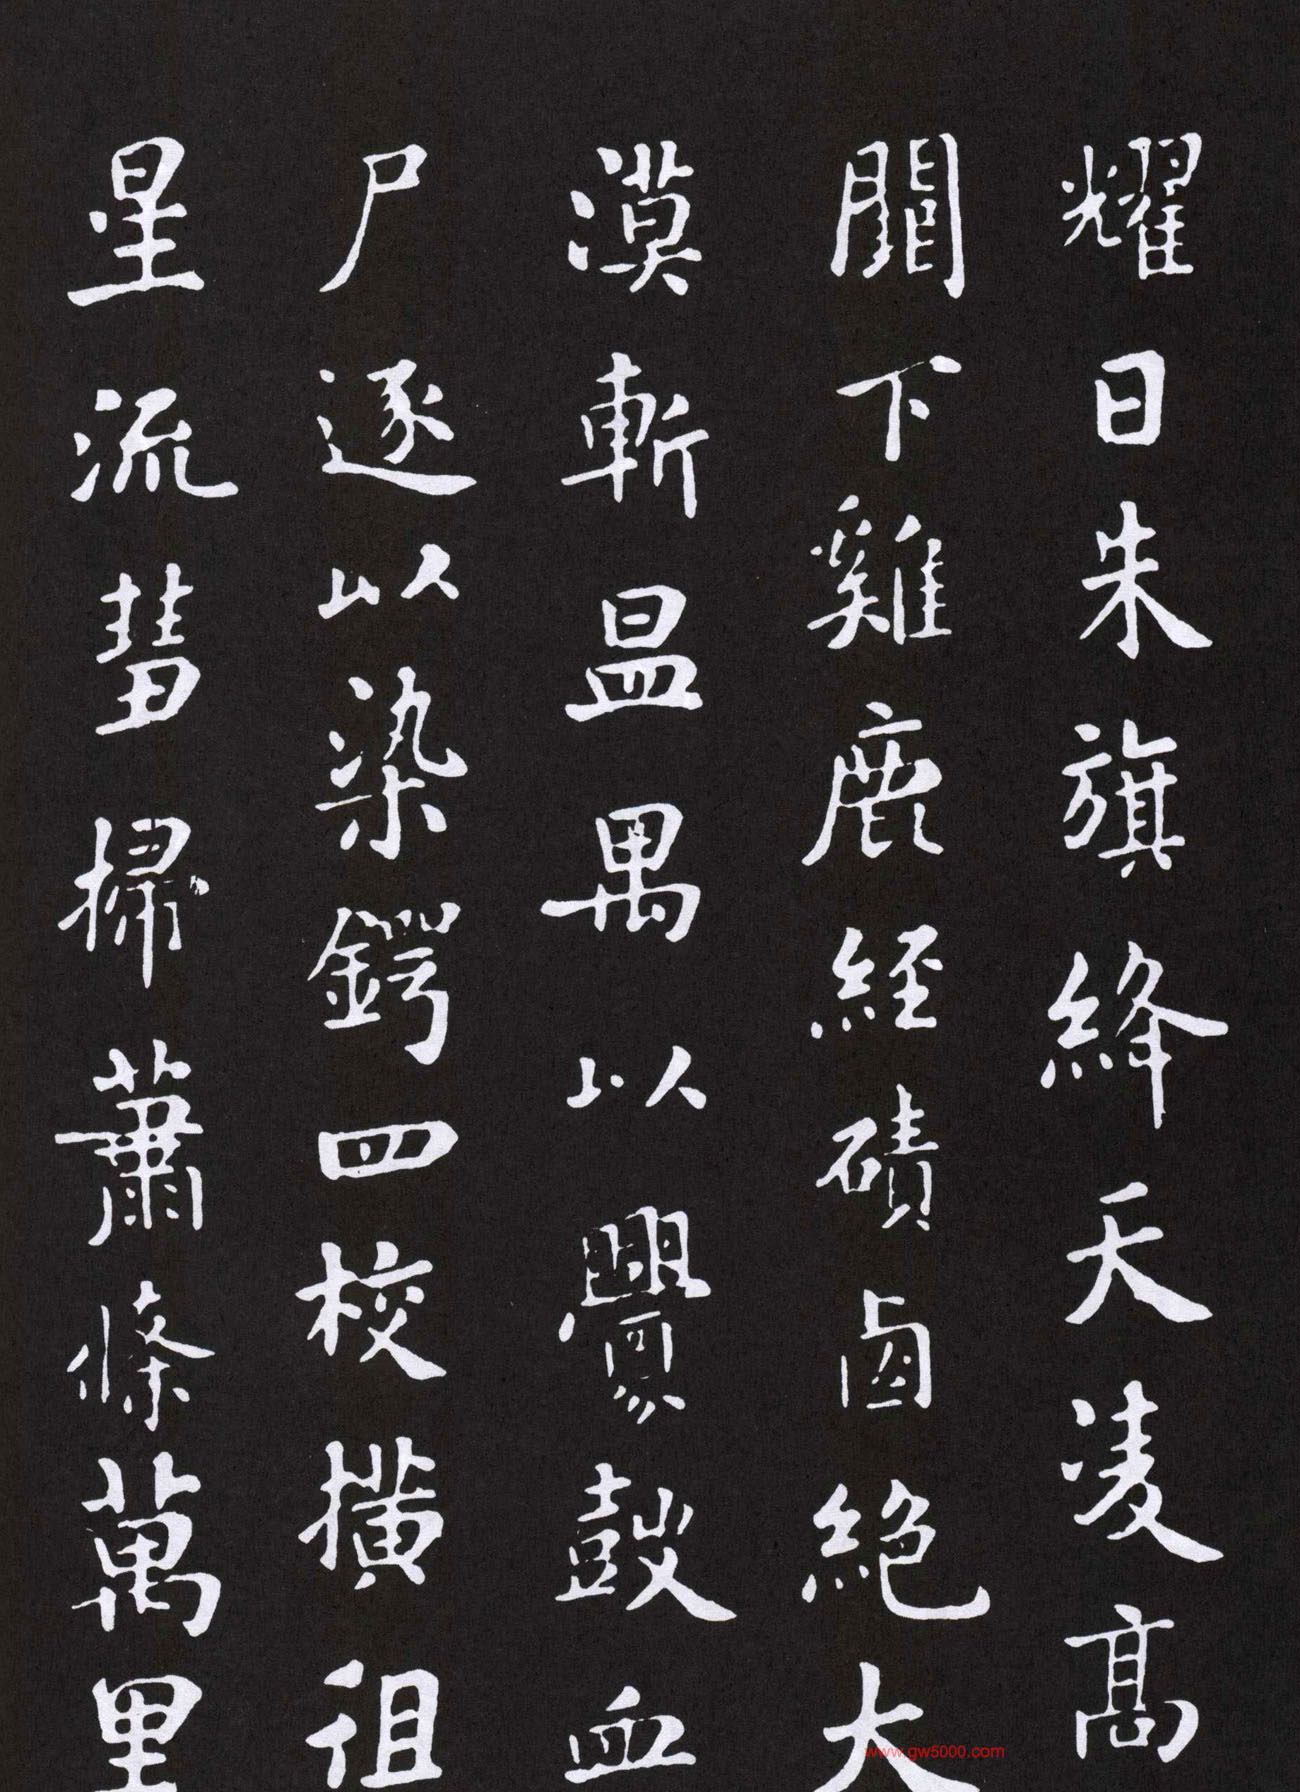 耀日朱旗絳天凌高
闕下雞鹿經磧鹵絕大
漠斬昷禺以釁鼓血
尸逐以染鍔四校橫徂
星流彗掃蕭條萬里
www.gw5000.com